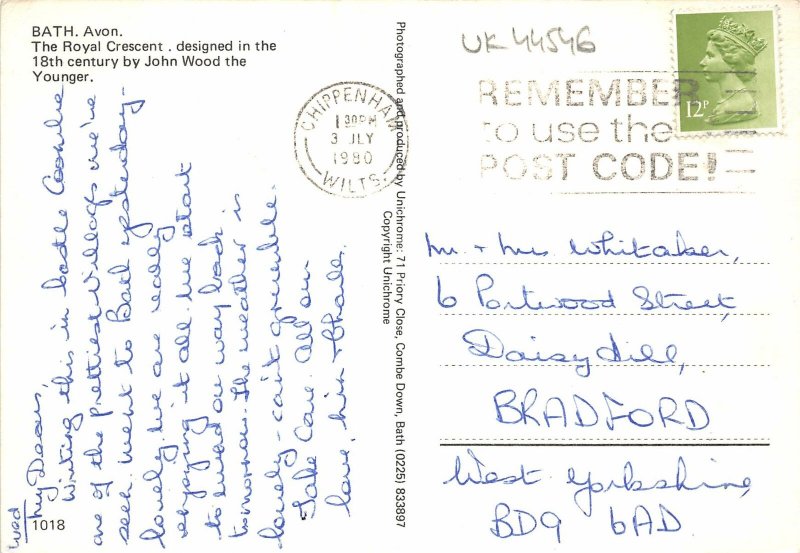 BATH. Avon.
The Royal Crescent . designed in the
18th century by John Wood the
Younger.
Wed
My Dears,
Writing this in Castle Coombe
one of the Prettiest Villages we've
seen. Went to Bath yesterday -
lovely. We are really
enjoying it all. We start
to wend our way back
tomorrow. The weather is
lovely - can't grumble.
Take Care. All our
love, + Charles.
1018
Photographed and produced by Unichrome: 71 Priory Close, Combe Down, Bath (0225) 833897
Copyright Unichrome
CHIPPENHAM
1 30PM
3 JLY
1980
WILTS.
UK 44546
REMEMBER
to use the
POST CODE!
12P
Mr. + Mrs Whitaker,
6 Portwood Street,
Daisy Hill,
BRADFORD
West Yorkshire,
BD9 6AD.